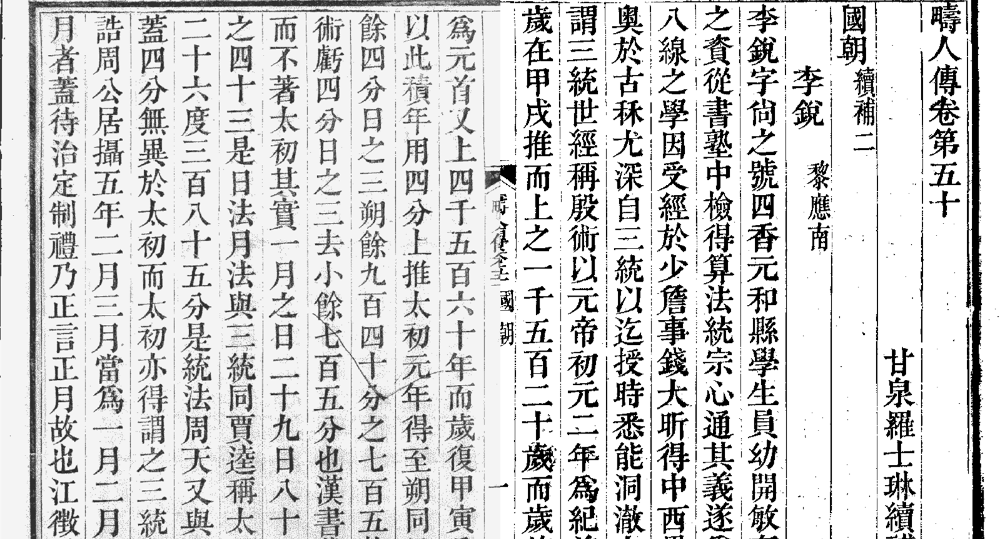 疇人傳卷第五十
甘泉羅士琳續
國朝續補二
李銳
黎應南
李銳字尙之號四香元和縣學生員幼開敏
之資從書塾中檢得算法統宗心通其義遂
八線之學因受經於少詹事錢大昕得中西
奧於古秝尤深自三統以迄授時悉能洞澈
謂三統世經稱殷術以元帝初元二年爲紀
歲在甲戌推而上之一千五百二十歲而歲
國朝
一
爲元首又上四千五百六十年而歲復甲寅
以此積年用四分上推太初元年得至朔同
餘四分日之三朔餘九百四十分之七百五
術虧四分日之三去小餘七百五分也漢書
而不著太初其實一月之日二十九日八十
之四十三是日法月法與三統同賈逵稱太
二十六度三百八十五分是統法周天又與
蓋四分無異於太初而太初亦得謂之三統
誥周公居攝五年二月三月當爲一月二月
月者蓋待治定制禮乃正言正月故也江徵